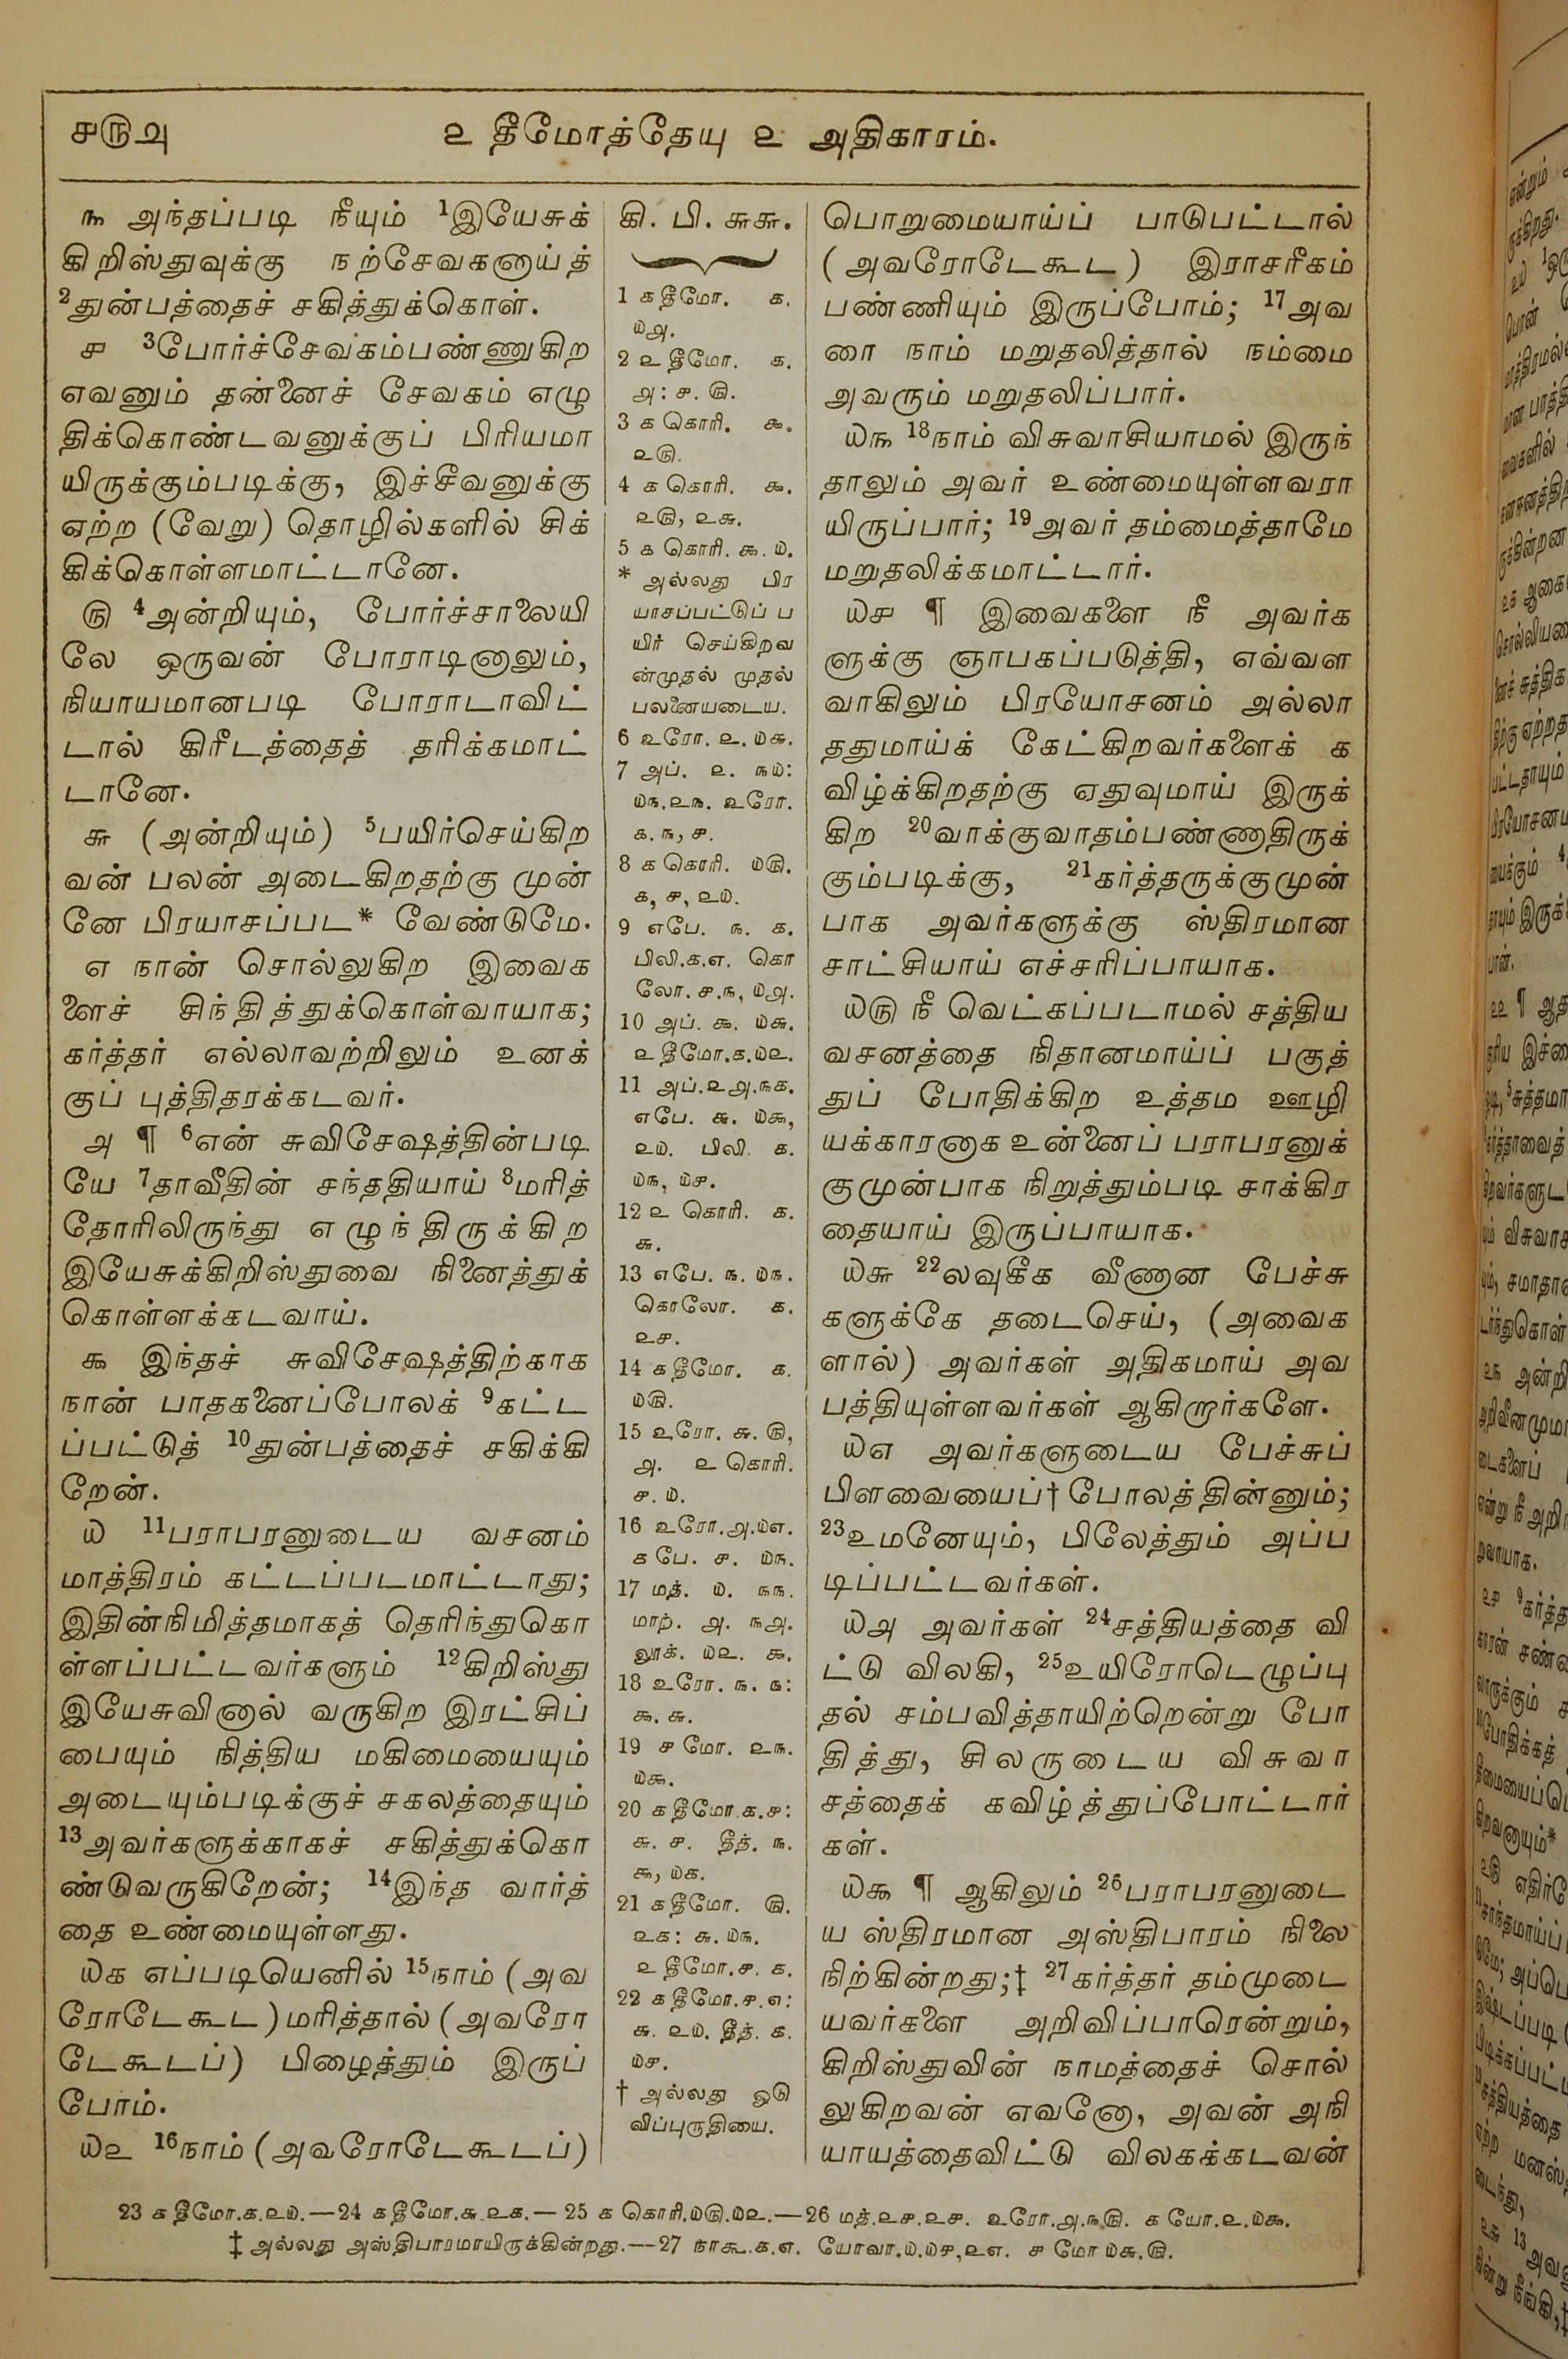 ௪௫௮
௨ தீமோத்தேயு ௨ அதிகாரம்.
௩ அந்தப்படி நீயும் 1இயேசுக்
கிறிஸ்துவுக்கு நற்சேவகனாய்த்
2துன்பத்தைச் சகித்துக்கொள்.
௪ 3போர்ச்சேவகம்பண்ணுகிற
எவனும் தன்னைச் சேவகம் எழு
திக்கொண்டவனுக்குப் பிரியமா
யிருக்கும்படிக்கு, இச்சீவனுக்கு
ஏற்ற (வேறு) தொழில்களில் சிக்
கிக்கொள்ளமாட்டானே.
௫ 4அன்றியும், போர்ச்சாலையி
லே ஒருவன் போராடினாலும்,
நியாயமானபடி போராடாவிட்
டால் கிரீடத்தைத் தரிக்கமாட்
டானே.
௬ (அன்றியும்) 5பயிர்செய்கிற
வன் பலன் அடைகிறதற்கு முன்
னே பிரயாசப்பட* வேண்டுமே.
௭ நான் சொல்லுகிற இவைக
ளைச் சிந்தித்துக்கொள்வாயாக;
கர்த்தர் எல்லாவற்றிலும் உனக்
குப் புத்திதரக்கடவர்.
௮ ¶ 6என் சுவிசேஷத்தின்படி
யே 7தாவீதின் சந்ததியாய் 8மரித்
தோரிலிருந்து எழுந்திருக்கிற
இயேசுக்கிறிஸ்துவை நினைத்துக்
கொள்ளக்கடவாய்.
௯ இந்தச் சுவிசேஷத்திற்காக
நான் பாதகனைப்போலக் 9கட்ட
ப்பட்டுத் 10துன்பத்தைச் சகிக்கி
றேன்.
௰ 11பராபரனுடைய வசனம்
மாத்திரம் கட்டப்படமாட்டாது;
இதின்நிமித்தமாகத் தெரிந்துகொ
ள்ளப்பட்டவர்களும் 12கிறிஸ்து
இயேசுவினால் வருகிற இரட்சிப்
பையும் நித்திய மகிமையையும்
அடையும்படிக்குச் சகலத்தையும்
13அவர்களுக்காகச் சகித்துக்கொ
ண்டுவருகிறேன்; 14இந்த வார்த்
தை உண்மையுள்ளது.
௰௧ எப்படியெனில் 15நாம் (அவ
ரோடேகூட) மரித்தால் (அவரோ
டேகூடப்) பிழைத்தும் இருப்
போம்.
௰௨ 16நாம் (அவரோடேகூடப்)
கி. பி. ௬௬.
1 ௧ தீமோ. ௧.
௰௮.
2 ௨ தீமோ. ௧.
௮: ௪. ௫.
3 ௧ கொரி. ௯.
௨௫.
4 ௧ கொரி. ௯.
௨௫, ௨௬.
5 ௧ கொரி. ௯. ௰.
* அல்லது பிர
யாசப்பட்டுப் ப
யிர் செய்கிறவ
ன்முதல் முதல்
பலனையடைய.
6 உரோ. ௨. ௰௬.
7 அப். ௨. ௩௰:
௰௩.௨௩. உரோ.
௧. ௩, ௪.
8 ௧ கொரி. ௰௫.
௧, ௪, ௨௰.
9 எபே. ௩. ௧.
பிலி.௧.௭. கொ
லோ. ௪.௩, ௰௮.
10 அப். ௯. ௰௬.
௨ தீமோ.௧.௰௨.
11 அப்.௨௮.௩௧.
எபே. ௬. ௰௯,
௨௰. பிலி. ௧.
௰௩, ௰௪.
12 ௨ கொரி. ௧.
௬.
13 எபே. ௩. ௰௩.
கொலோ. ௧.
௨௪.
14 ௧ தீமோ. ௧.
௰௫.
15 உரோ. ௬. ௫,
௮. ௨ கொரி.
௪. ௰.
16 உரோ.௮.௰௭.
௧ பே. ௪. ௰௩.
17 மத். ௰. ௩௩.
மாற். ௮. ௩௮.
லூக். ௰௨. ௯.
18 உரோ. ௩. ௩:
௯. ௬.
19 ௪ மோ. ௨௩.
௰௯.
20 ௧ தீமோ.௧.௪:
௬. ௪. தீத். ௩.
௯, ௰௧.
21 ௧ தீமோ. ௫.
௨௧: ௬. ௰௩.
௨ தீமோ.௪. ௧.
22 ௧ தீமோ.௪.௭:
௬. ௨௰. தீத். ௧.
௰௪.
† அல்லது ஓடு
விப்புருதியை.
பொறுமையாய்ப் பாடுபட்டால்
(அவரோடேகூட) இராசரீகம்
பண்ணியும் இருப்போம்; 17அவ
ரை நாம் மறுதலித்தால் நம்மை
அவரும் மறுதலிப்பார்.
௰௩ 18நாம் விசுவாசியாமல் இருந்
தாலும் அவர் உண்மையுள்ளவரா
யிருப்பார்; 19அவர் தம்மைத்தாமே
மறுதலிக்கமாட்டார்.
௰௪ ¶ இவைகளை நீ அவர்க
ளுக்கு ஞாபகப்படுத்தி, எவ்வள
வாகிலும் பிரயோசனம் அல்லா
ததுமாய்க் கேட்கிறவர்களைக் க
விழ்க்கிறதற்கு ஏதுவுமாய் இருக்
கிற 20வாக்குவாதம்பண்ணாதிருக்
கும்படிக்கு, 21கர்த்தருக்குமுன்
பாக அவர்களுக்கு ஸ்திரமான
சாட்சியாய் எச்சரிப்பாயாக.
௰௫ நீ வெட்கப்படாமல் சத்திய
வசனத்தை நிதானமாய்ப் பகுத்
துப் போதிக்கிற உத்தம ஊழி
யக்காரனாக உன்னைப் பராபரனுக்
குமுன்பாக நிறுத்தும்படி சாக்கிர
தையாய் இருப்பாயாக.
௰௬ 22லவுகீக வீணான பேச்சு
களுக்கே தடைசெய், (அவைக
ளால்) அவர்கள் அதிகமாய் அவ
பத்தியுள்ளவர்கள் ஆகிறார்களே.
௰௭ அவர்களுடைய பேச்சுப்
பிளவையைப்† போலத் தின்னும்;
23உமனேயும், பிலேத்தும் அப்ப
டிப்பட்டவர்கள்.
௰௮ அவர்கள் 24சத்தியத்தை வி
ட்டு விலகி, 25உயிரோடெழுப்பு
தல் சம்பவித்தாயிற்றென்று போ
தித்து, சிலருடைய விசுவா
சத்தைக் கவிழ்த்துப்போட்டார்
கள்.
௰௯ ¶ ஆகிலும் 26பராபரனுடை
ய ஸ்திரமான அஸ்திபாரம் நிலை
நிற்கின்றது;‡ 27கர்த்தர் தம்முடை
யவர்களை அறிவிப்பாரென்றும்,
கிறிஸ்துவின் நாமத்தைச் சொல்
லுகிறவன் எவனோ, அவன் அநி
யாயத்தைவிட்டு விலகக்கடவன்
23 ௧ தீமோ.௧.௨௰.—24 ௧ தீமோ.௬.௨௧.— 25 ௧ கொரி.௰௫.௰௨.—26 மத்.௨௪.௨௪. உரோ.௮.௩௫. ௧ யோ.௨.௰௯.
‡ அல்லது அஸ்திபாரமாயிருக்கின்றது.—27 நாகூ.௧.௭. யோவா.௰.௰௪,௨௭. ௪ மோ ௰௬.௫.